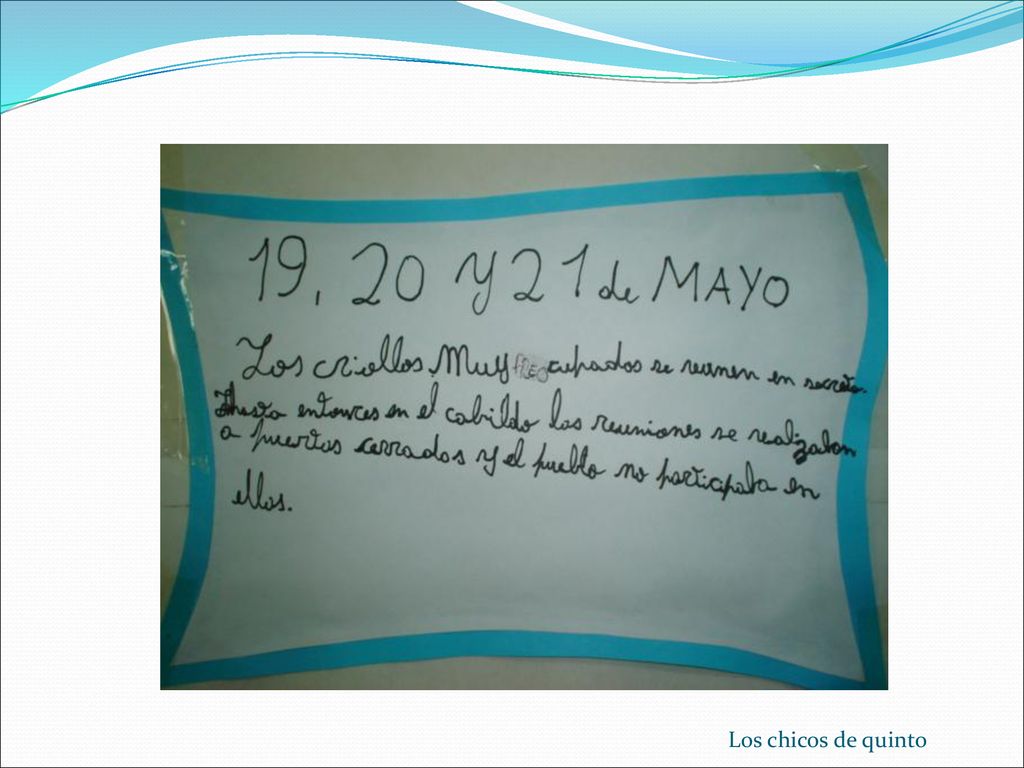 19, 20 Y 21 de MAYO
Los criollos, Muy PREOcupados se reunen en secreto.
Hasta entonces en el cabildo las reuniones se realizaban
a puertas cerradas y el pueblo no participaba en
ellas.
Los chicos de quinto